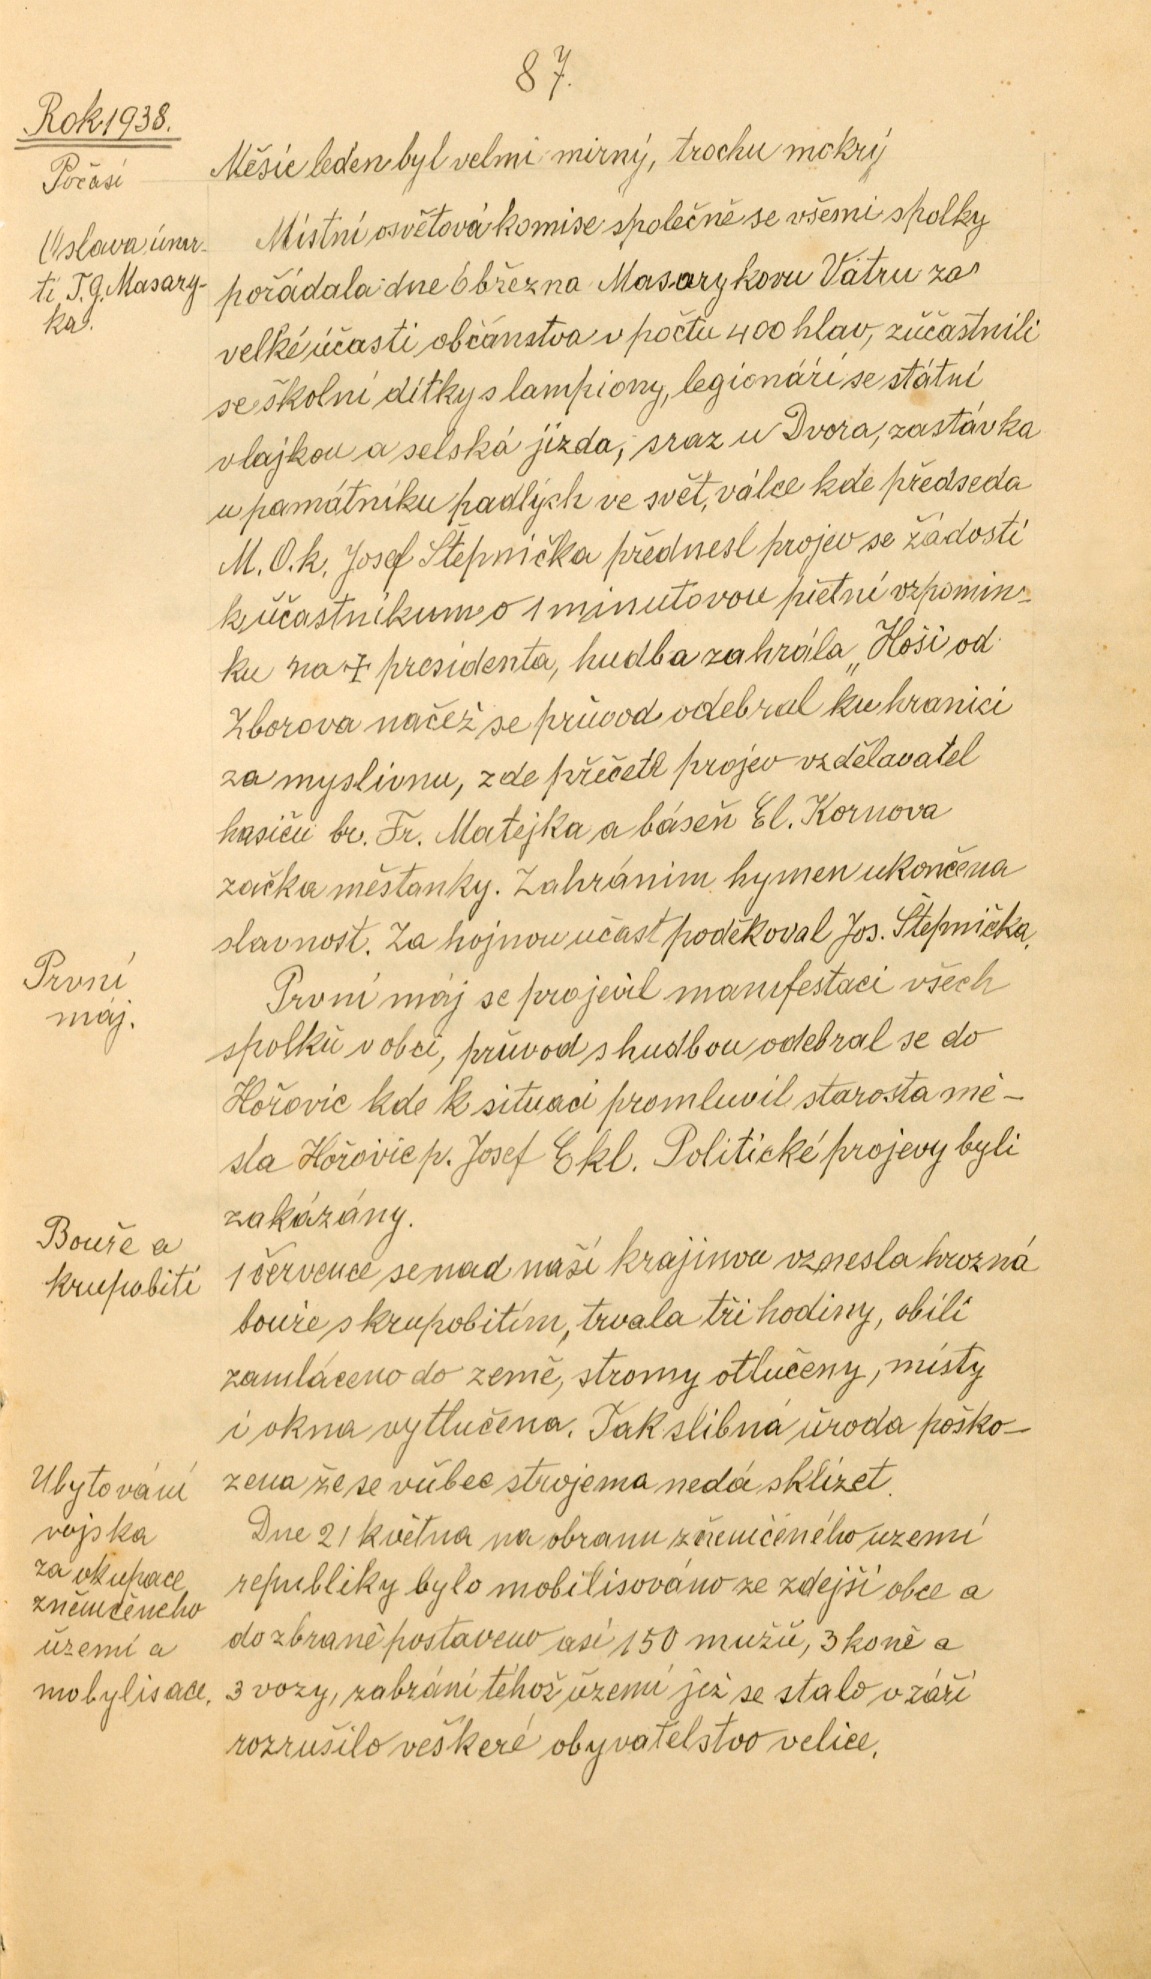 87.
Rok 1938.
Počasí
Měsíc leden byl velmi mirný, trochu mokrý
Oslava úmr-
tí T.G. Masary-
ka.
Místní osvětová komise společně se všemi spolky
pořádala dne 6 března Masarykovu Vatru za
velké účasti občanstva v počtu 400 hlav, zúčastnili
se školní dítky s lampiony, legionáři se státní
vlajkou a selská jízda, sraz u Dvora, zastávka
u památníku padlých ve svět, válce kde předseda
M. O. k. Josef Štěpnička přednesl projev se žádostí
k účastníkum o 1 minutovou pietní vzpomín-
ku na + presidenta, hudba zahrála „Hoši od
Zborova načež se průvod odebral ku hranici
za myslivnu, zde přečetl projev vzdělavatel
hasičů br. Fr. Matějka a báseň El. Kornova
začka měšťanky. Zahráním hymen ukončena
slavnost. Za hojnou učast poděkoval Jos. Štěpnička.
První
máj.
První máj se projevil manifestací všech
spolků v obci, průvod s hudbou odebral se do
Hořovic kde k situaci promluvil starosta mě-
sta Hořovic p. Josef Ekl. Politické projevy byli
zakázány.
Bouře a
krupobití
1 července se nad naší krajinou vznesla hrozná
bouře s krupobitím, trvala tři hodiny, obilí
zamláceno do země, stromy otlučeny, místy
i okna vytlučena. Tak slibná úroda poško-
zena že se vůbec strojema nedá sklízet.
Ubytování
vojska
za okupace
zněmčeneho
území a
mobylisace.
Dne 21 května na obranu zněmčeného uzemí
republiky bylo mobilisováno ze zdejší obce a
do zbraně postaveno asi 150 mužů, 3 koně a
3 vozy, zabrání téhož území jež se stalo v září
rozrušilo veškeré obyvatelstvo velice.